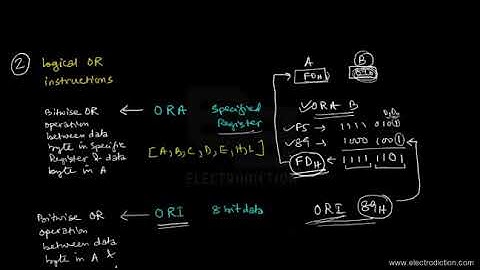 2 Logical OR
instructions
Bitwise OR
operation
between data
byte in specific
Register & data
byte in A
ORA Specified
Register
[A,B,C,D,E,H,L]
A B
FDH
ORA B
D1 D0
F5 → 1111 0101
89 → 1000 1001
FDH ← 1111 1101
ORI 89H
Bitwise OR
operation
between data
byte in A &
ORI 8 bit data
ELECTRODICTION
www.electrodiction.com